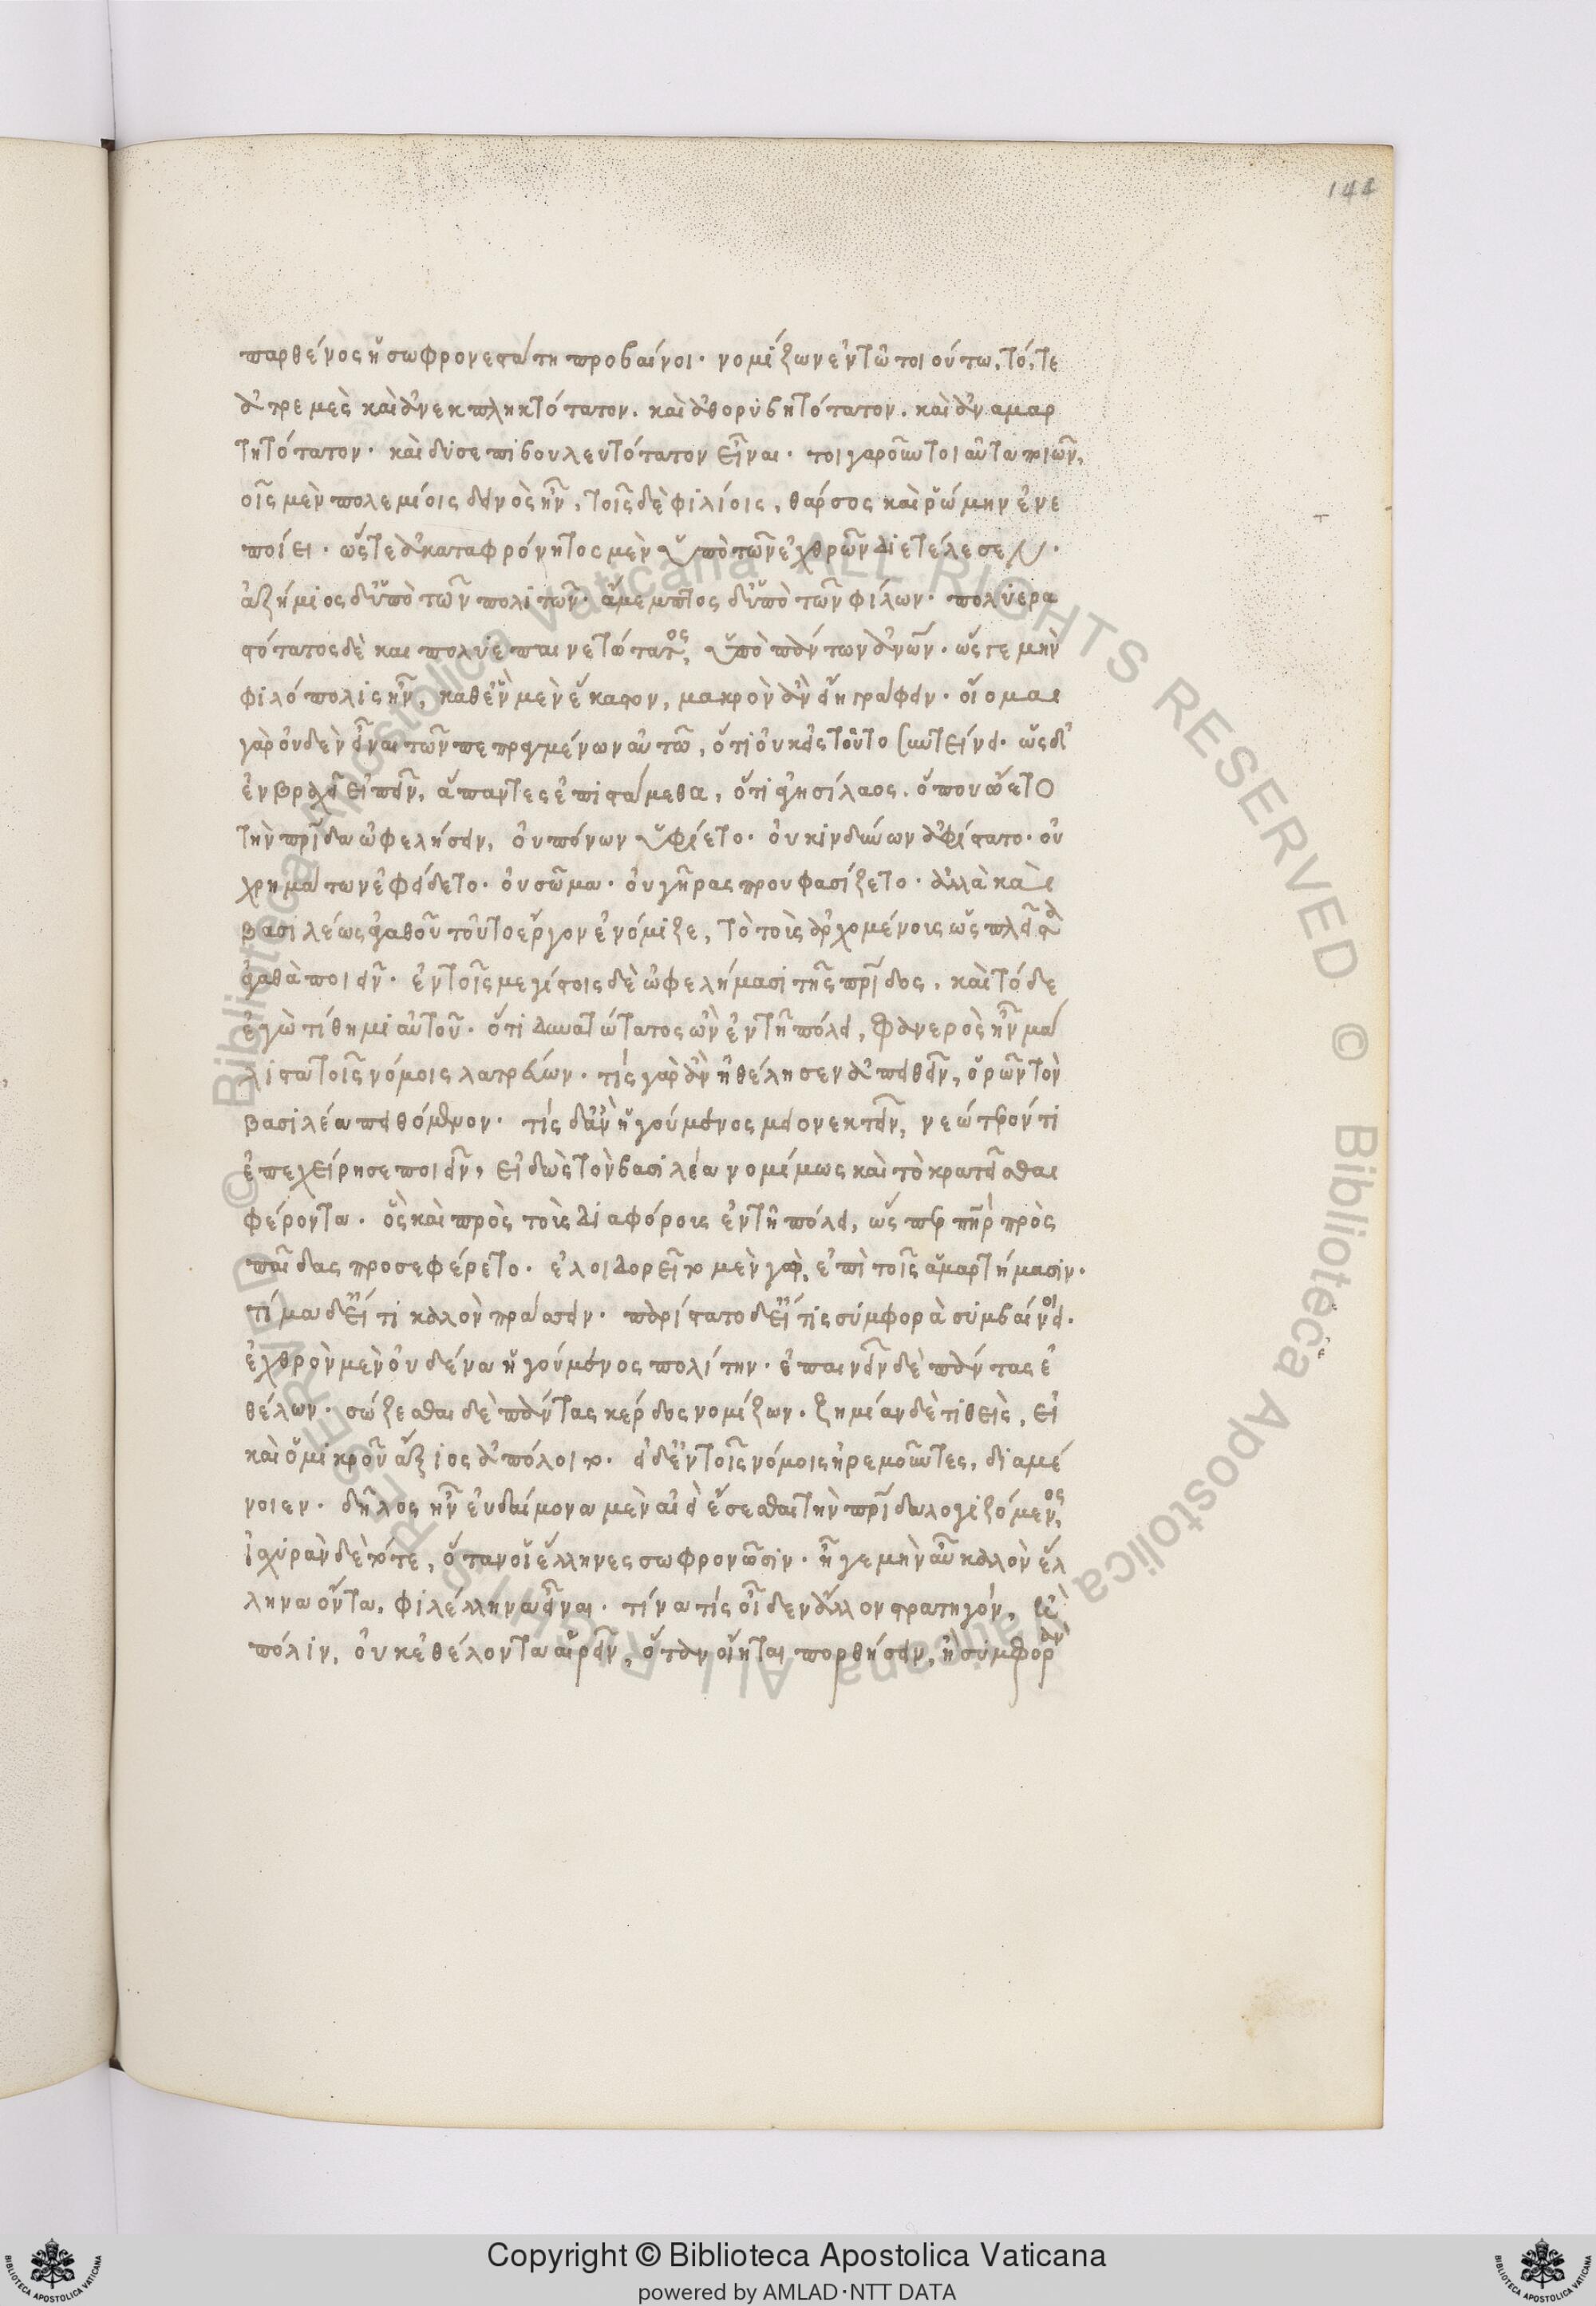 144
παρθένος ἡ σωφρονεστάτη προβαίνοι· νομίζων ἐν τῶ τοι ούτω, τό, τε
ἀτρεμὲς καὶ ἀνεκπληκτότατον. καὶ ἀθορυβητότατον. καὶ ἀναμαρ
τητότατον· καὶ δυσεπιβουλευτότατον εἶναι· τοιγαροῦν τοιαῦτα ποιῶν,
οἷς μὲν πολεμίοις δεινὸς ἦν, τοῖς δὲ φιλίοις, θάρσος καὶ ῥώμην ἐνε
ποίει· ὥστε ἀκαταφρόνητος μὲν ὑπὸ τῶν ἐχθρῶν διετέλεσεν·
ἀζήμιος δ' ὑπὸ τῶν πολιτῶν· ἄμεμπτος δ' ὑπὸ τῶν φίλων· πολυερα
στότατος δὲ και πολυεπαινετώτατος, ὑπὸ πάντων ἀνῶν· ὥς γε μὴν
φιλόπολις ἦν, καθ' ἓν μὲν ἕκαστον, μακρὸν ἂν εἴη γράφειν· οἴομαι
γὰρ οὐδὲν εἶναι τῶν πεπραγμένων αὐτῶ, ὅτι οὐκ εἰς τοῦτο συντείνει· ὡς δ'
ἐν βραχεῖ εἰπεῖν, ἅπαντες ἐπιστάμεθα, ὅτι ἀγησίλαος. ὅπου ὤετο
τὴν πρίδα ὠφελήσειν, οὐ πόνων ὑφίετο· οὐ κινδύνων ἀφίστατο· οὐ
χρημάτων ἐφείδετο· οὐ σῶμα· οὐ γῆρας προυφασίζετο· ἀλλὰ καὶ
βασιλέως ἀγαθοῦ τοῦτο ἔργον ἐνόμιζε, τὸ τοὺς ἀρχομένους ὡς πλεῖστα
ἀγαθὰ ποιεῖν· ἐν τοῖς μεγίστοις δὲ ὠφελήμασι τῆς πρίδος, καὶ τόδε
ἐγὼ τίθημι αὐτοῦ· ὅτι δυνατώτατος ὢν ἐν τῆ πόλει, φανερὸς ἦν μά
λιστα τοῖς νόμοις λατρεύων· τίς γὰρ ἂν ἠθέλησεν ἀπειθεῖν, ὁρῶν τὸν
βασιλέα πειθόμενον· τίς δ' ἂν ἡγούμενος μειονεκτεῖν, νεώτερόν τι
ἐπεχείρησε ποιεῖν, εἰδὼς τὸν βασιλέα νομίμως καὶ τὸ κρατεῖσθαι
φέροντα· ὃς καὶ πρὸς τοὺς διαφόρους ἐν τῆ πόλει, ὥσπερ πὴρ πρὸς
παῖδας προσεφέρετο· ἐλοιδορεῖτο μὲν γὰρ, ἐπὶ τοῖς ἁμαρτήμασιν·
τίμα δ' εἴ τι καλὸν πράσσειν· παρίστατο δ' εἴ τις συμφορὰ συμβαίνοι·
ἐχθρὸν μὲν οὐδένα ἡγούμενος πολίτην· ἐπαινεῖν δὲ πάντας ἐ
θέλων· σώζεσθαι δὲ πάντας κέρδος νομίζων· ζημίαν δὲ τιθεὶς, εἰ
καὶ ὁ μικροῦ ἄξιος ἀπόλοιτο· εἰ δ' ἐν τοῖς νόμοις ἠρεμοῦντες, διαμέ
νοιεν· δῆλος ἦν εὐδαίμονα μὲν αἰεὶ ἔσεσθαι τὴν πρίδα λογιζόμενος,
ἰσχυρὰν δὲ τότε, ὅταν οἱ ἕλληνες σωφρονῶσιν· ἦ γε μὴν αὖ καλὸν ἕλ
ληνα ὄντα, φιλέλληνα εἶναι· τίνα τίς οἶδεν ἄλλον στρατηγόν, ἢ
πόλιν, οὐκ ἐθέλοντα αἱρεῖν, ὅταν οἴηται πορθήσειν, ἢ συμφορὰν
Copyright © Biblioteca Apostolica Vaticana
powered by AMLAD·NTT DATA